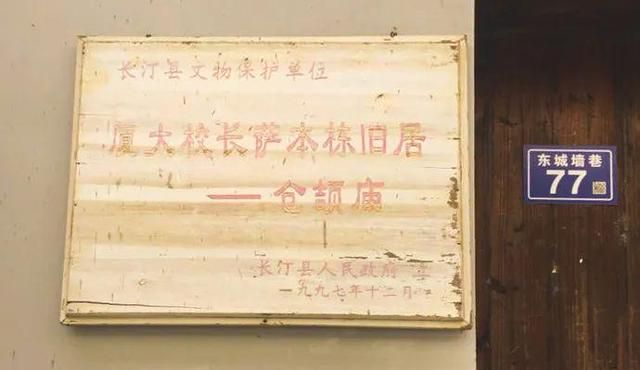 长汀县文物保护单位
厦大校长萨本栋旧居
——仓颉庙
长汀县人民政府 立
一九九七年十二月
东城墙巷
77